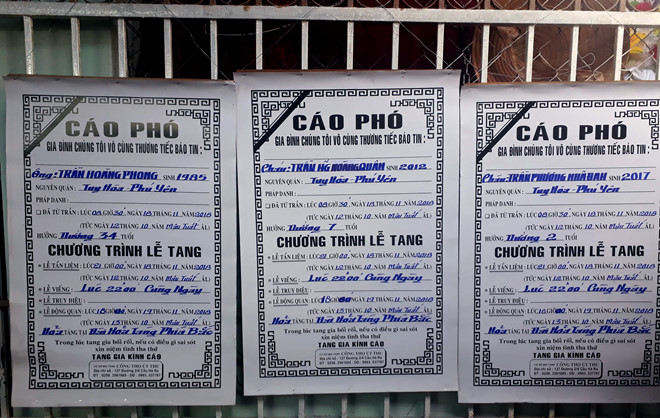 CÁO PHÓ
GIA ĐÌNH CHÚNG TÔI VÔ CÙNG THƯƠNG TIẾC BÁO TIN :
Ông: TRẦN HOÀNG PHONG SINH 1985
NGUYÊN QUÁN : Tuy Hòa - Phú Yên
PHÁP DANH :
ĐÃ TỪ TRẦN : LÚC 08 GIỜ 30, NGÀY 18 THÁNG 11 NĂM 2018
(TỨC NGÀY 12 THÁNG 10 NĂM Mậu Tuất ÂL)
HƯỞNG Dương 34 TUỔI
CHƯƠNG TRÌNH LỄ TANG
LỄ TẨN LIỆM : LÚC 21 GIỜ 00 NGÀY 18 THÁNG 11 NĂM 2018
(TỨC NGÀY 12 THÁNG 10 NĂM Mậu Tuất ÂL)
LỄ VIẾNG : Lúc 22h00 Cùng Ngày
LỄ TRUY ĐIỆU :
LỄ ĐỘNG QUAN : NGÀY 19 THÁNG 11 NĂM 2018
(TỨC NGÀY 13 THÁNG 10 NĂM Mậu Tuất ÂL)
Hỏa TÁNG TẠI Đài Hoá Táng Phía Bắc
Trong lúc tang gia bối rối, nếu có điều gì sai sót
xin niệm tình tha thứ
TANG GIA KÍNH CÁO
CÁO PHÓ
GIA ĐÌNH CHÚNG TÔI VÔ CÙNG THƯƠNG TIẾC BÁO TIN :
Cháu: TRẦN HOÀNG QUÂN SINH 2012
NGUYÊN QUÁN : Tuy Hòa - Phú Yên
PHÁP DANH :
ĐÃ TỪ TRẦN : LÚC 08 GIỜ 30, NGÀY 18 THÁNG 11 NĂM 2018
(TỨC NGÀY 12 THÁNG 10 NĂM Mậu Tuất ÂL)
HƯỞNG Dương 7 TUỔI
CHƯƠNG TRÌNH LỄ TANG
LỄ TẨN LIỆM : LÚC 21 GIỜ 00 NGÀY 18 THÁNG 11 NĂM 2018
(TỨC NGÀY 12 THÁNG 10 NĂM Mậu Tuất ÂL)
LỄ VIẾNG : Lúc 22h00 Cùng Ngày
LỄ TRUY ĐIỆU :
LỄ ĐỘNG QUAN : NGÀY 19 THÁNG 11 NĂM 2018
(TỨC NGÀY 13 THÁNG 10 NĂM Mậu Tuất ÂL)
Hỏa TÁNG TẠI Đài Hoá Táng Phía Bắc
Trong lúc tang gia bối rối, nếu có điều gì sai sót
xin niệm tình tha thứ
TANG GIA KÍNH CÁO
CÁO PHÓ
GIA ĐÌNH CHÚNG TÔI VÔ CÙNG THƯƠNG TIẾC BÁO TIN :
Cháu: TRẦN PHƯƠNG NHÃ ĐAN SINH 2017
NGUYÊN QUÁN : Tuy Hòa - Phú Yên
PHÁP DANH :
ĐÃ TỪ TRẦN : LÚC 08 GIỜ 30, NGÀY 18 THÁNG 11 NĂM 2018
(TỨC NGÀY 12 THÁNG 10 NĂM Mậu Tuất ÂL)
HƯỞNG Dương 2 TUỔI
CHƯƠNG TRÌNH LỄ TANG
LỄ TẨN LIỆM : LÚC 21 GIỜ 00 NGÀY 18 THÁNG 11 NĂM 2018
(TỨC NGÀY 12 THÁNG 10 NĂM Mậu Tuất ÂL)
LỄ VIẾNG : Lúc 22h00 Cùng Ngày
LỄ TRUY ĐIỆU :
LỄ ĐỘNG QUAN : NGÀY 19 THÁNG 11 NĂM 2018
(TỨC NGÀY 13 THÁNG 10 NĂM Mậu Tuất ÂL)
Hỏa TÁNG TẠI Đài Hoá Táng Phía Bắc
Trong lúc tang gia bối rối, nếu có điều gì sai sót
xin niệm tình tha thứ
TANG GIA KÍNH CÁO